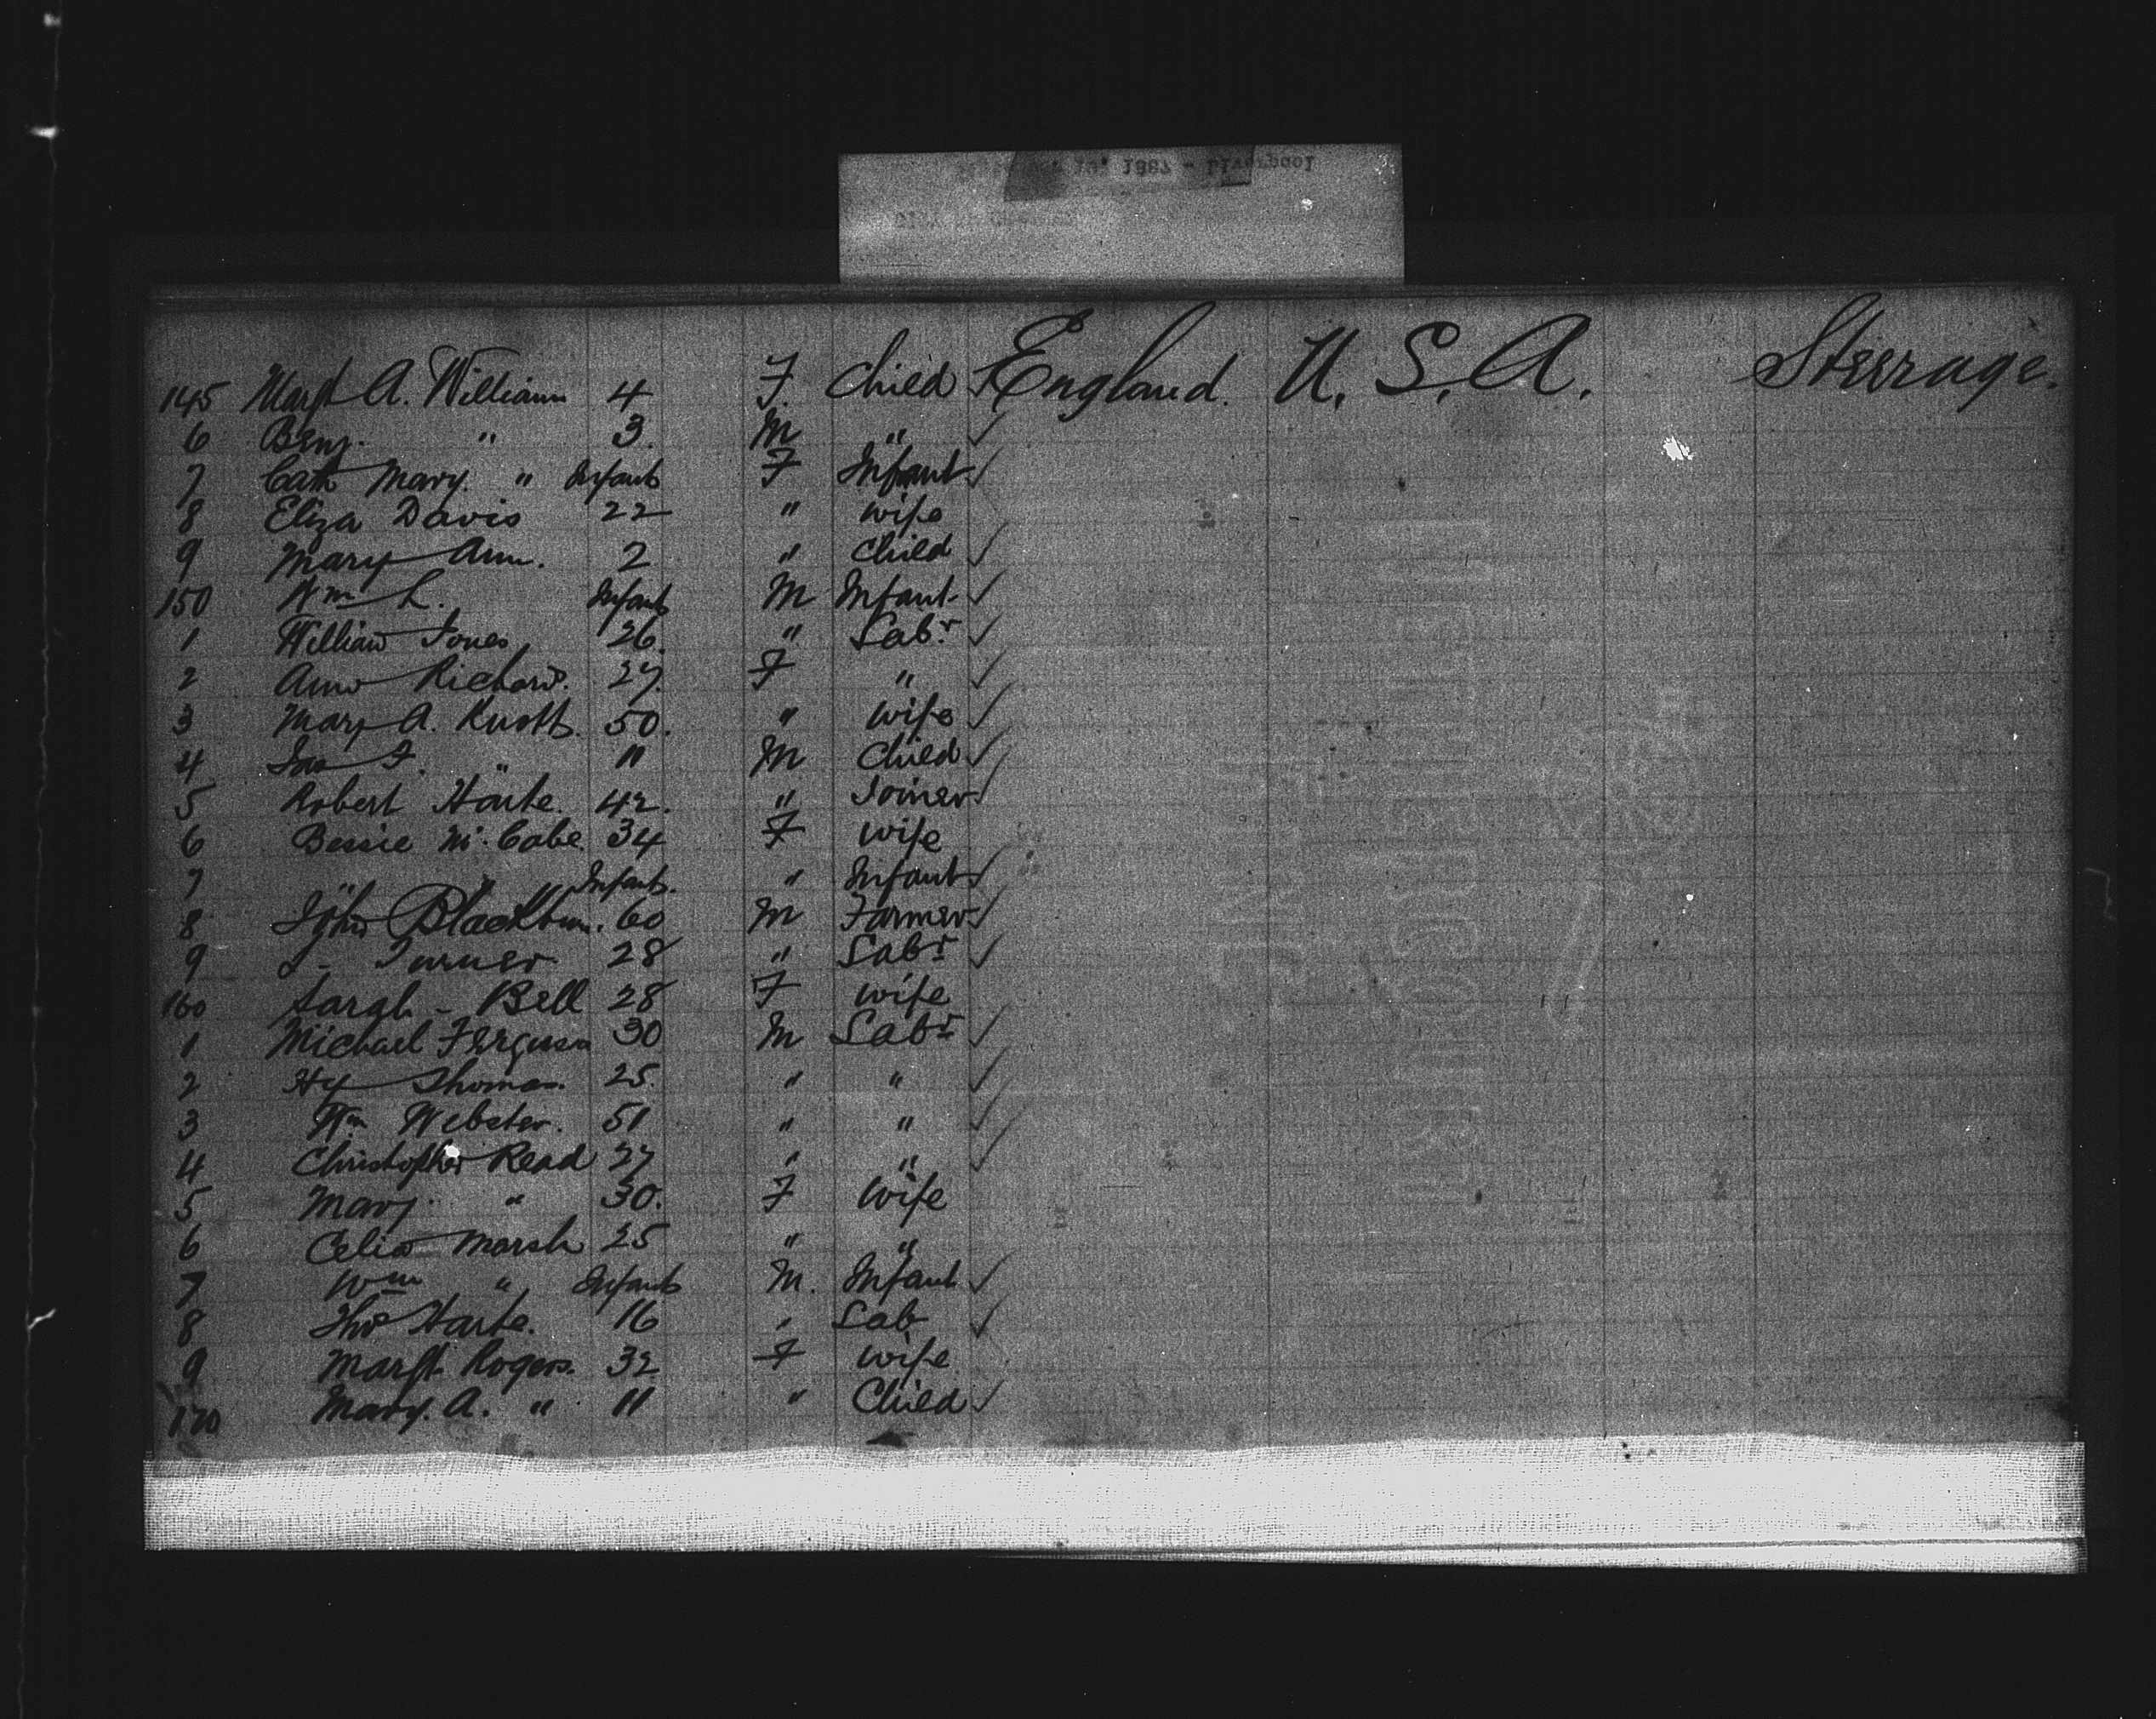 1887 - Liverpool
145 Margt A. William 4 F. Child ✓ England. U. S. A. Steerage.
6 Benj. " 3. M " ✓
7 Cath Mary. " Infant F Infant ✓
8 Eliza Davis 22 " wife
9 Mary Ann. 2 " Child ✓
150 Wm L. Infant M Infant ✓
1 William Jones 26. " Labr ✓
2 Ann Richard. 27. F " ✓
3 Mary A. Knott. 50. " wife ✓
4 Jno F. " 11 M Child ✓
5 Robert Harte. 42. " Joiner ✓
6 Bessie Mc Cabe 34 F wife
7 " " Infant. " Infant ✓
8 John Blackburn. 60 M Farmer ✓
9 Turner 28 " Labr ✓
160 Sarah - Bell 28 F wife
1 Michael Ferguson 30 M Labr ✓
2 Hy Thomas. 25. " " ✓
3 Wm Webster. 51 " " ✓
4 Christopher Read 27 " " ✓
5 Mary " 30. F wife
6 Celia Marsh 25 " "
7 Wm " Infant M. Infant ✓
8 Thos Harte. 16 " Lab ✓
9 Margt. Rogers. 32 F wife
170 Mary. A. " 11 " Child ✓